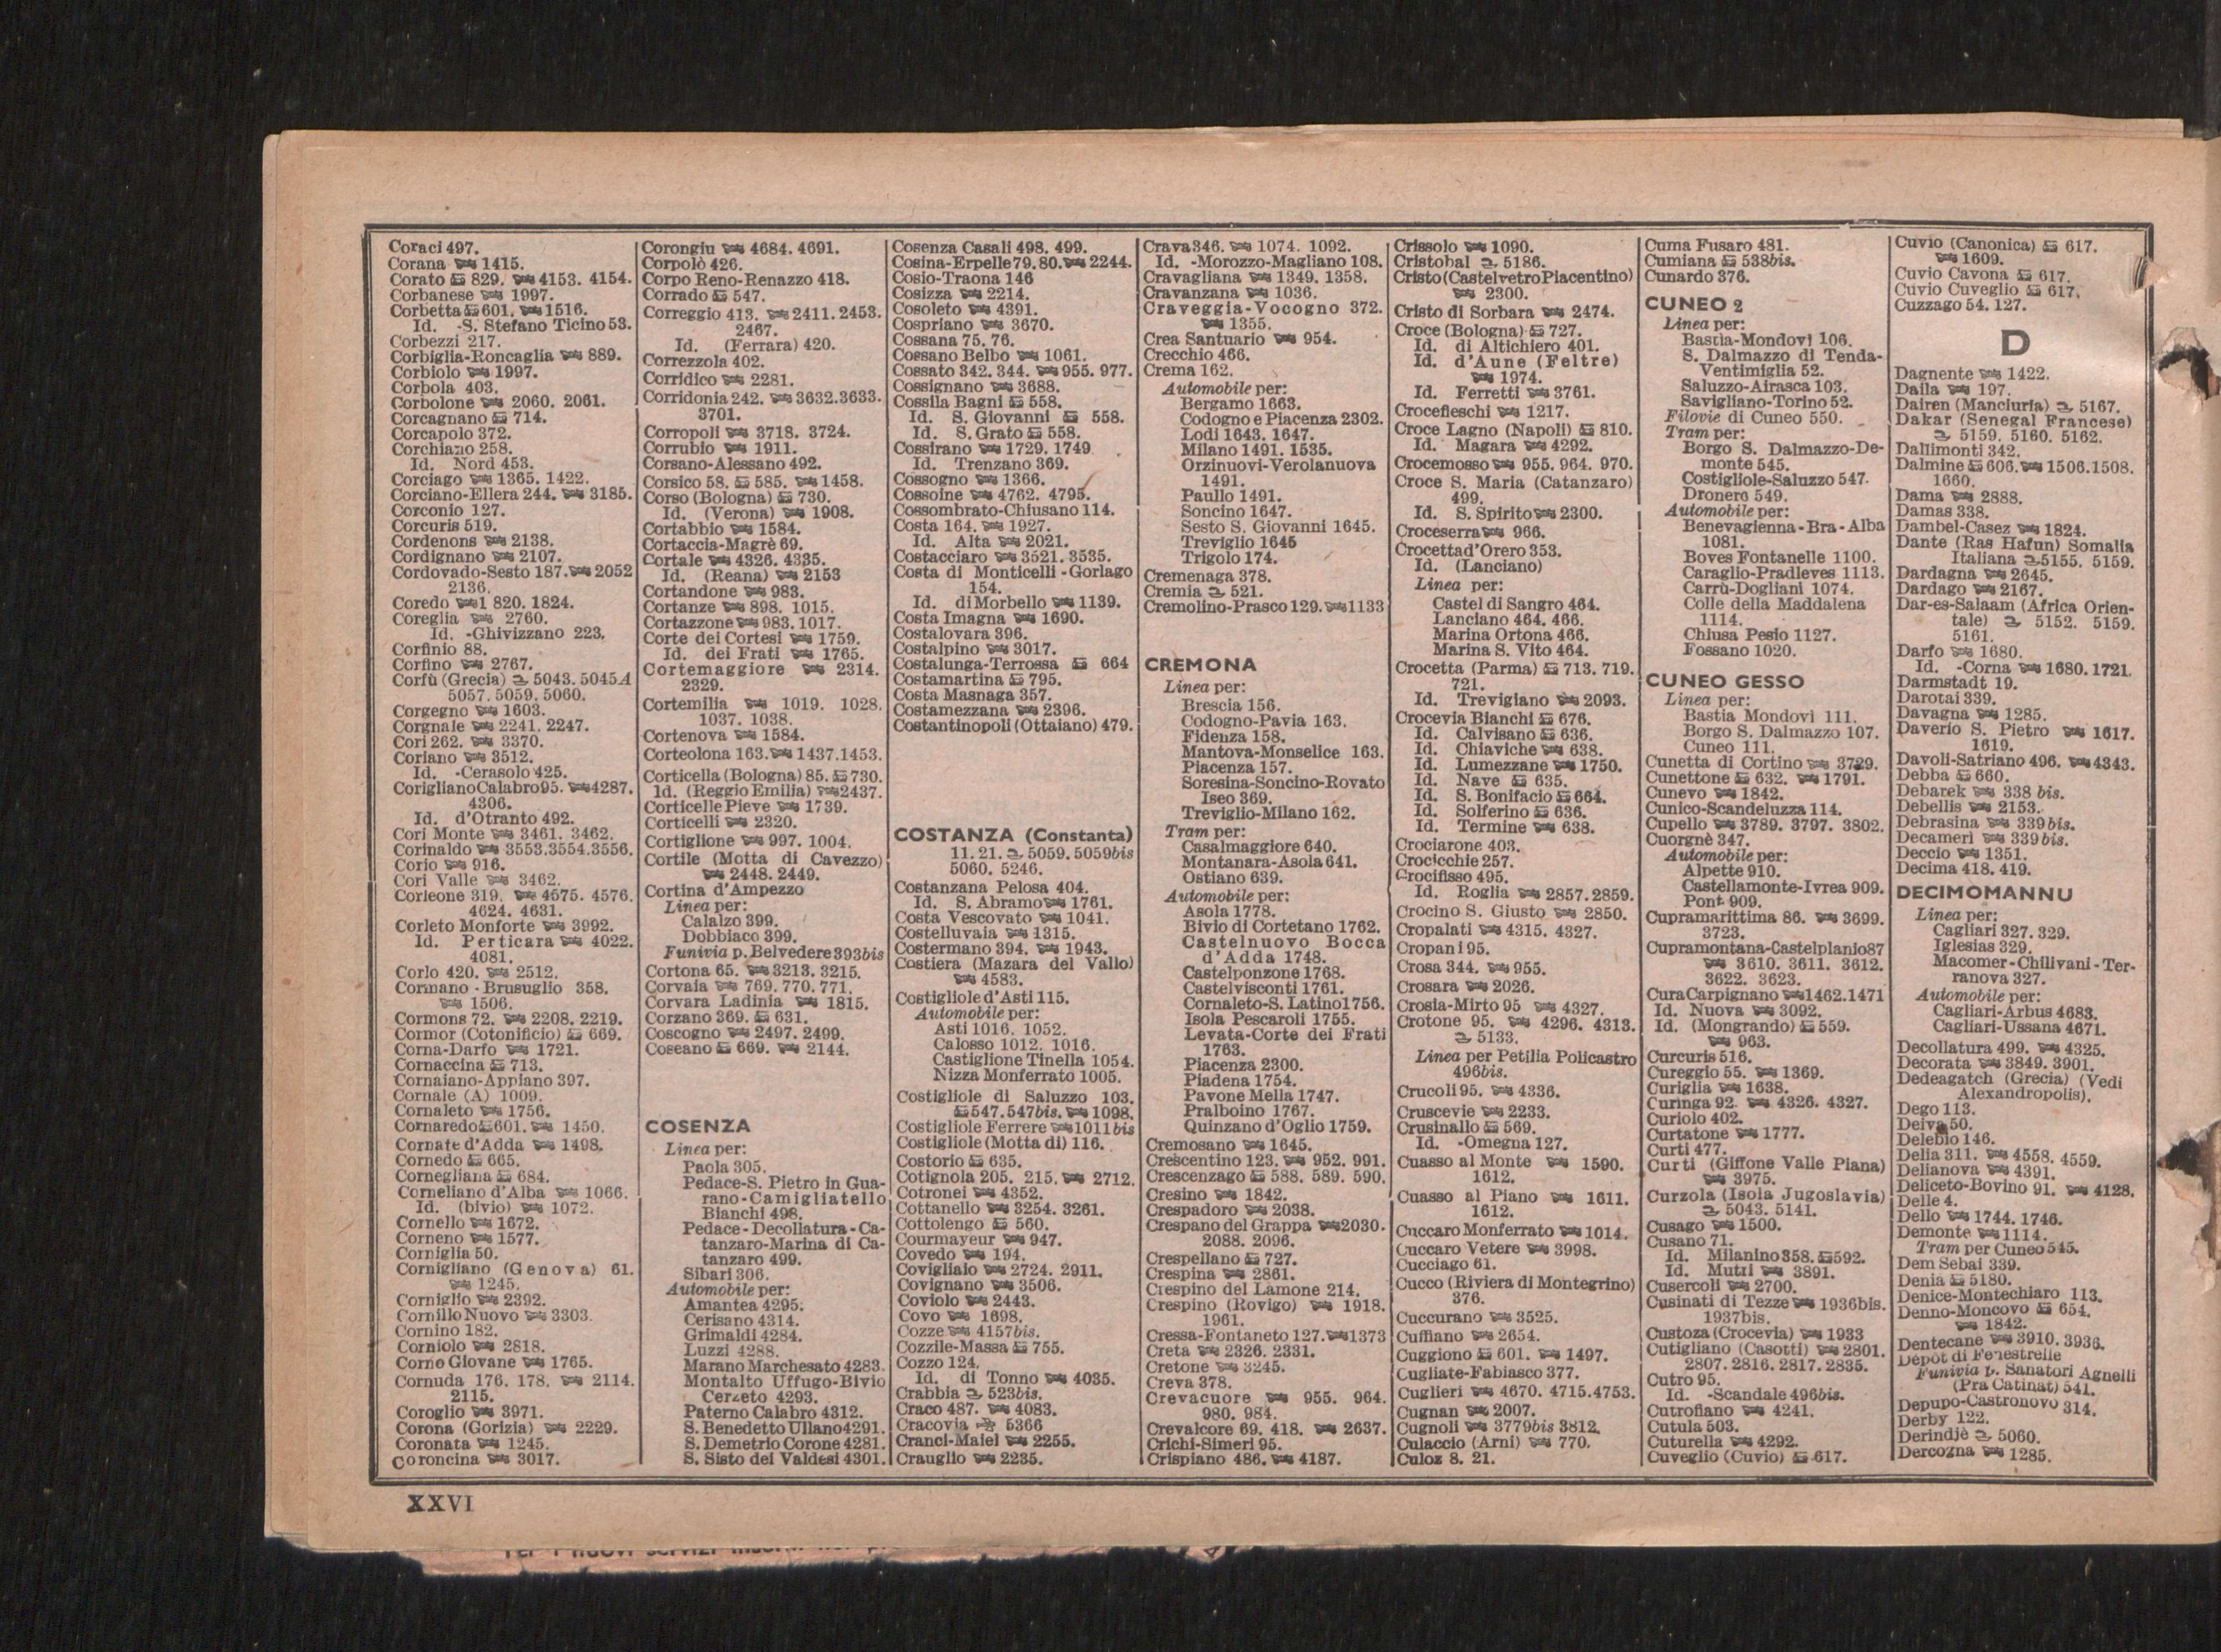 Coraci 497.
Corana 1415.
Corato 829. 4153. 4154.
Corbanese 1997.
Corbetta 601. 1516.
Id. -S. Stefano Ticino 53.
Corbezzi 217.
Corbiglia-Roncaglia 889.
Corbiolo 1997.
Corbola 403.
Corbolone 2060. 2061.
Corcagnano 714.
Corcapolo 372.
Corchiano 258.
Id. Nord 453.
Corciago 1365. 1422.
Corciano-Ellera 244. 3185.
Corconio 127.
Corcuris 519.
Cordenons 2138.
Cordignano 2107.
Cordovado-Sesto 187. 2052
2136.
Coredo 1 820. 1824.
Coreglia 2760.
Id. -Ghivizzano 223.
Corfinio 88.
Corfino 2767.
Corfù (Grecia) 5043. 5045A
5057. 5059. 5060.
Corgegno 1603.
Corgnale 2241. 2247.
Cori 262. 3370.
Coriano 3512.
Id. -Cerasolo 425.
Corigliano Calabro 95. 4287.
4306.
Id. d'Otranto 492.
Cori Monte 3461. 3462.
Corinaldo 3553.3554.3556.
Corio 916.
Cori Valle 3462.
Corleone 319. 4575. 4576.
4624. 4631.
Corleto Monforte 3992.
Id. Perticara 4022.
4081.
Corlo 420. 2512.
Cormano - Brusuglio 358.
1506.
Cormons 72. 2208. 2219.
Cormor (Cotonificio) 669.
Corna-Darfo 1721.
Cornaccina 713.
Cornaiano-Appiano 397.
Cornale (A) 1009.
Cornaleto 1756.
Cornaredo 601. 1450.
Cornate d'Adda 1498.
Cornedo 665.
Cornegliana 684.
Corneliano d'Alba 1066.
Id. (bivio) 1072.
Cornello 1672.
Corneno 1577.
Corniglia 50.
Cornigliano (Genova) 61.
1245.
Corniglio 2392.
Cornillo Nuovo 3303.
Cornino 182.
Corniolo 2818.
Corno Giovane 1765.
Cornuda 176. 178. 2114.
2115.
Coroglio 3971.
Corona (Gorizia) 2229.
Coronata 1245.
Coroncina 3017.
Corongiu 4684. 4691.
Corpolò 426.
Corpo Reno-Renazzo 418.
Corrado 547.
Correggio 413. 2411. 2453.
2467.
Id. (Ferrara) 420.
Correzzola 402.
Corridico 2281.
Corridonia 242. 3632.3633.
3701.
Corropoli 3718. 3724.
Corrubio 1911.
Corsano-Alessano 492.
Corsico 58. 585. 1458.
Corso (Bologna) 730.
Id. (Verona) 1908.
Cortabbio 1584.
Cortaccia-Magrè 69.
Cortale 4326. 4335.
Id. (Reana) 2153
Cortandone 983.
Cortanze 898. 1015.
Cortazzone 983. 1017.
Corte dei Cortesi 1759.
Id. dei Frati 1765.
Cortemaggiore 2314.
2329.
Cortemilia 1019. 1028.
1037. 1038.
Cortenova 1584.
Corteolona 163. 1437.1453.
Corticella (Bologna) 85. 730.
Id. (Reggio Emilia) 2437.
Corticelle Pieve 1739.
Corticelli 2320.
Cortiglione 997. 1004.
Cortile (Motta di Cavezzo)
2448. 2449.
Cortina d'Ampezzo
Linea per:
Calalzo 399.
Dobbiaco 399.
Funivia p. Belvedere 393bis
Cortona 65. 3213. 3215.
Corvaia 769. 770. 771.
Corvara Ladinia 1815.
Corzano 369. 631.
Coscogno 2497. 2499.
Coseano 669. 2144.
COSENZA
Linea per:
Paola 305.
Pedace-S. Pietro in Gua-
rano-Camigliatello
Bianchi 498.
Pedace-Decollatura-Ca-
tanzaro-Marina di Ca-
tanzaro 499.
Sibari 306.
Automobile per:
Amantea 4295.
Cerisano 4314.
Grimaldi 4284.
Luzzi 4288.
Marano Marchesato 4283.
Montalto Uffugo-Bivio
Cerzeto 4293.
Paterno Calabro 4312.
S. Benedetto Ullano 4291.
S. Demetrio Corone 4281.
S. Sisto dei Valdesi 4301.
Cosenza Casali 498. 499.
Cosina-Erpelle 79. 80. 2244.
Cosio-Traona 146
Cosizza 2214.
Cosoleto 4391.
Cospriano 3670.
Cossana 75. 76.
Cossano Belbo 1061.
Cossato 342. 344. 955. 977.
Cossignano 3688.
Cossila Bagni 558.
Id. S. Giovanni 558.
Id. S. Grato 558.
Cossirano 1729. 1749
Id. Trenzano 369.
Cossogno 1366.
Cossoine 4762. 4795.
Cossombrato-Chiusano 114.
Costa 164. 1927.
Id. Alta 2021.
Costacciaro 3521. 3535.
Costa di Monticelli - Gorlago
154.
Id. di Morbello 1139.
Costa Imagna 1690.
Costalovara 396.
Costalpino 3017.
Costalunga-Terrossa 664
Costamartina 795.
Costa Masnaga 357.
Costamezzana 2396.
Costantinopoli (Ottaiano) 479.
COSTANZA (Constanta)
11. 21. 5059. 5059bis
5060. 5246.
Costanzana Pelosa 404.
Id. S. Abramo 1761.
Costa Vescovato 1041.
Costelluvaia 1315.
Costermano 394. 1943.
Costiera (Mazara del Vallo)
4583.
Costigliole d'Asti 115.
Automobile per:
Asti 1016. 1052.
Calosso 1012. 1016.
Castiglione Tinella 1054.
Nizza Monferrato 1005.
Costigliole di Saluzzo 103.
547. 547bis. 1098.
Costigliole Ferrere 1011bis
Costigliole (Motta di) 116.
Costorio 635.
Cotignola 205. 215. 2712.
Cotronei 4352.
Cottanello 3254. 3261.
Cottolengo 560.
Courmayeur 947.
Covedo 194.
Covigliaio 2724. 2911.
Covignano 3506.
Coviolo 2443.
Covo 1698.
Cozze 4157bis.
Cozzile-Massa 755.
Cozzo 124.
Id. di Tonno 4035.
Crabbia 523bis.
Craco 487. 4083.
Cracovia 5366
Cranci-Maiel 2255.
Crauglio 2235.
Crava 346. 1074. 1092.
Id. -Morozzo-Magliano 108.
Cravagliana 1349. 1358.
Cravanzana 1036.
Craveggia-Vocogno 372.
1355.
Crea Santuario 954.
Crecchio 466.
Crema 162.
Automobile per:
Bergamo 1663.
Codogno e Piacenza 2302.
Lodi 1643. 1647.
Milano 1491. 1535.
Orzinuovi-Verolanuova
1491.
Paullo 1491.
Soncino 1647.
Sesto S. Giovanni 1645.
Treviglio 1645
Trigolo 174.
Cremenaga 378.
Cremia 521.
Cremolino-Prasco 129. 1133
CREMONA
Linea per:
Brescia 156.
Codogno-Pavia 163.
Fidenza 158.
Mantova-Monselice 163.
Piacenza 157.
Soresina-Soncino-Rovato
Iseo 369.
Treviglio-Milano 162.
Tram per:
Casalmaggiore 640.
Montanara-Asola 641.
Ostiano 639.
Automobile per:
Asola 1778.
Bivio di Cortetano 1762.
Castelnuovo Bocca
d'Adda 1748.
Castelponzone 1768.
Castelvisconti 1761.
Cornaleto-S. Latino 1756.
Isola Pescaroli 1755.
Levata-Corte dei Frati
1763.
Piacenza 2300.
Piadena 1754.
Pavone Mella 1747.
Pralboino 1767.
Quinzano d'Oglio 1759.
Cremosano 1645.
Crescentino 123. 952. 991.
Crescenzago 588. 589. 590.
Cresino 1842.
Crespadoro 2038.
Crespano del Grappa 2030.
2088. 2096.
Crespellano 727.
Crespina 2861.
Crespino del Lamone 214.
Crespino (Rovigo) 1918.
1961.
Cressa-Fontaneto 127. 1373
Creta 2326. 2331.
Cretone 3245.
Creva 378.
Crevacuore 955. 964.
980. 984.
Crevalcore 69. 418. 2637.
Crichi-Simeri 95.
Crispiano 486. 4187.
Crissolo 1090.
Cristobal 5186.
Cristo (Castelvetro Piacentino)
2300.
Cristo di Sorbara 2474.
Croce (Bologna) 727.
Id. di Altichiero 401.
Id. d'Aune (Feltre)
1974.
Id. Ferretti 3761.
Crocefieschi 1217.
Croce Lagno (Napoli) 810.
Id. Magara 4292.
Crocemosso 955. 964. 970.
Croce S. Maria (Catanzaro)
499.
Id. S. Spirito 2300.
Croceserra 966.
Crocetta d'Orero 353.
Id. (Lanciano)
Linea per:
Castel di Sangro 464.
Lanciano 464. 466.
Marina Ortona 466.
Marina S. Vito 464.
Crocetta (Parma) 713. 719.
721.
Id. Trevigiano 2093.
Crocevia Bianchi 676.
Id. Calvisano 636.
Id. Chiaviche 638.
Id. Lumezzane 1750.
Id. Nave 635.
Id. S. Bonifacio 664.
Id. Solferino 636.
Id. Termine 638.
Crociarone 403.
Crocicchie 257.
Crocifisso 495.
Id. Roglia 2857.2859.
Crocino S. Giusto 2850.
Cropalati 4315. 4327.
Cropani 95.
Crosa 344. 955.
Crosara 2026.
Crosia-Mirto 95 4327.
Crotone 95. 4296. 4313.
5133.
Linea per Petilia Policastro
496bis.
Crucoli 95. 4336.
Cruscevie 2233.
Crusinallo 569.
Id. -Omegna 127.
Cuasso al Monte 1590.
1612.
Cuasso al Piano 1611.
1612.
Cuccaro Monferrato 1014.
Cuccaro Vetere 3998.
Cucciago 61.
Cucco (Riviera di Montegrino)
376.
Cuccurano 3525.
Cuffiano 2654.
Cuggiono 601. 1497.
Cugliate-Fabiasco 377.
Cuglieri 4670. 4715.4753.
Cugnan 2007.
Cugnoli 3779bis 3812.
Culaccio (Arni) 770.
Culoz 8. 21.
Cuma Fusaro 481.
Cumiana 538bis.
Cunardo 376.
CUNEO 2
Linea per:
Bastia-Mondovì 106.
S. Dalmazzo di Tenda-
Ventimiglia 52.
Saluzzo-Airasca 103.
Savigliano-Torino 52.
Filovie di Cuneo 550.
Tram per:
Borgo S. Dalmazzo-De-
monte 545.
Costigliole-Saluzzo 547.
Dronero 549.
Automobile per:
Benevagienna - Bra - Alba
1081.
Boves Fontanelle 1100.
Caraglio-Pradleves 1113.
Carrù-Dogliani 1074.
Colle della Maddalena
1114.
Chiusa Pesio 1127.
Fossano 1020.
CUNEO GESSO
Linea per:
Bastia Mondovì 111.
Borgo S. Dalmazzo 107.
Cuneo 111.
Cunetta di Cortino 3729.
Cunettone 632. 1791.
Cunevo 1842.
Cunico-Scandeluzza 114.
Cupello 3789. 3797. 3802.
Cuorgnè 347.
Automobile per:
Alpette 910.
Castellamonte-Ivrea 909.
Pont 909.
Cupramarittima 86. 3699.
3723.
Cupramontana-Castelplanio 87
3610. 3611. 3612.
3622. 3623.
Cura Carpignano 1462.1471
Id. Nuova 3092.
Id. (Mongrando) 559.
963.
Curcuris 516.
Cureggio 55. 1369.
Curiglia 1638.
Curinga 92. 4326. 4327.
Curiolo 402.
Curtatone 1777.
Curti 477.
Curti (Giffone Valle Piana)
3975.
Curzola (Isola Jugoslavia)
5043. 5141.
Cusago 1500.
Cusano 71.
Id. Milanino 358. 592.
Id. Mutri 3891.
Cusercoli 2700.
Cusinati di Tezze 1936bis.
1937bis.
Custoza (Crocevia) 1933
Cutigliano (Casotti) 2801.
2807. 2816. 2817. 2835.
Cutro 95.
Id. -Scandale 496bis.
Cutrofiano 4241.
Cutula 503.
Cuturella 4292.
Cuveglio (Cuvio) 617.
Cuvio (Canonica) 617.
1609.
Cuvio Cavona 617.
Cuvio Cuveglio 617.
Cuzzago 54. 127.
D
Dagnente 1422.
Daila 197.
Dairen (Manciuria) 5167.
Dakar (Senegal Francese)
5159. 5160. 5162.
Dallimonti 342.
Dalmine 606. 1506.1508.
1660.
Dama 2888.
Damas 338.
Dambel-Casez 1824.
Dante (Ras Hafun) Somalia
Italiana 5155. 5159.
Dardagna 2645.
Dardago 2167.
Dar-es-Salaam (Africa Orien-
tale) 5152. 5159.
5161.
Darfo 1680.
Id. -Corna 1680. 1721.
Darmstadt 19.
Darotai 339.
Davagna 1285.
Daverio S. Pietro 1617.
1619.
Davoli-Satriano 496. 4343.
Debba 660.
Debarek 338 bis.
Debellis 2153.
Debrasina 339bis.
Decameri 339bis.
Deccio 1351.
Decima 418. 419.
DECIMOMANNU
Linea per:
Cagliari 327. 329.
Iglesias 329.
Macomer-Chilivani-Ter-
ranova 327.
Automobile per:
Cagliari-Arbus 4683.
Cagliari-Ussana 4671.
Decollatura 499. 4325.
Decorata 3849. 3901.
Dedeagatch (Grecia) (Vedi
Alexandropolis).
Dego 113.
Deiva 50.
Delebio 146.
Delia 311. 4558. 4559.
Delianova 4391.
Deliceto-Bovino 91. 4128.
Delle 4.
Dello 1744. 1746.
Demonte 1114.
Tram per Cuneo 545.
Dem Sebai 339.
Denia 5180.
Denice-Montechiaro 113.
Denno-Moncovo 654.
1842.
Dentecane 3910. 3936.
Dépôt di Fenestrelle
Funivia p. Sanatori Agnelli
(Pra Catinat) 541.
Depupo-Castronovo 314.
Derby 122.
Derindjè 5060.
Dercogna 1285.
XXVI